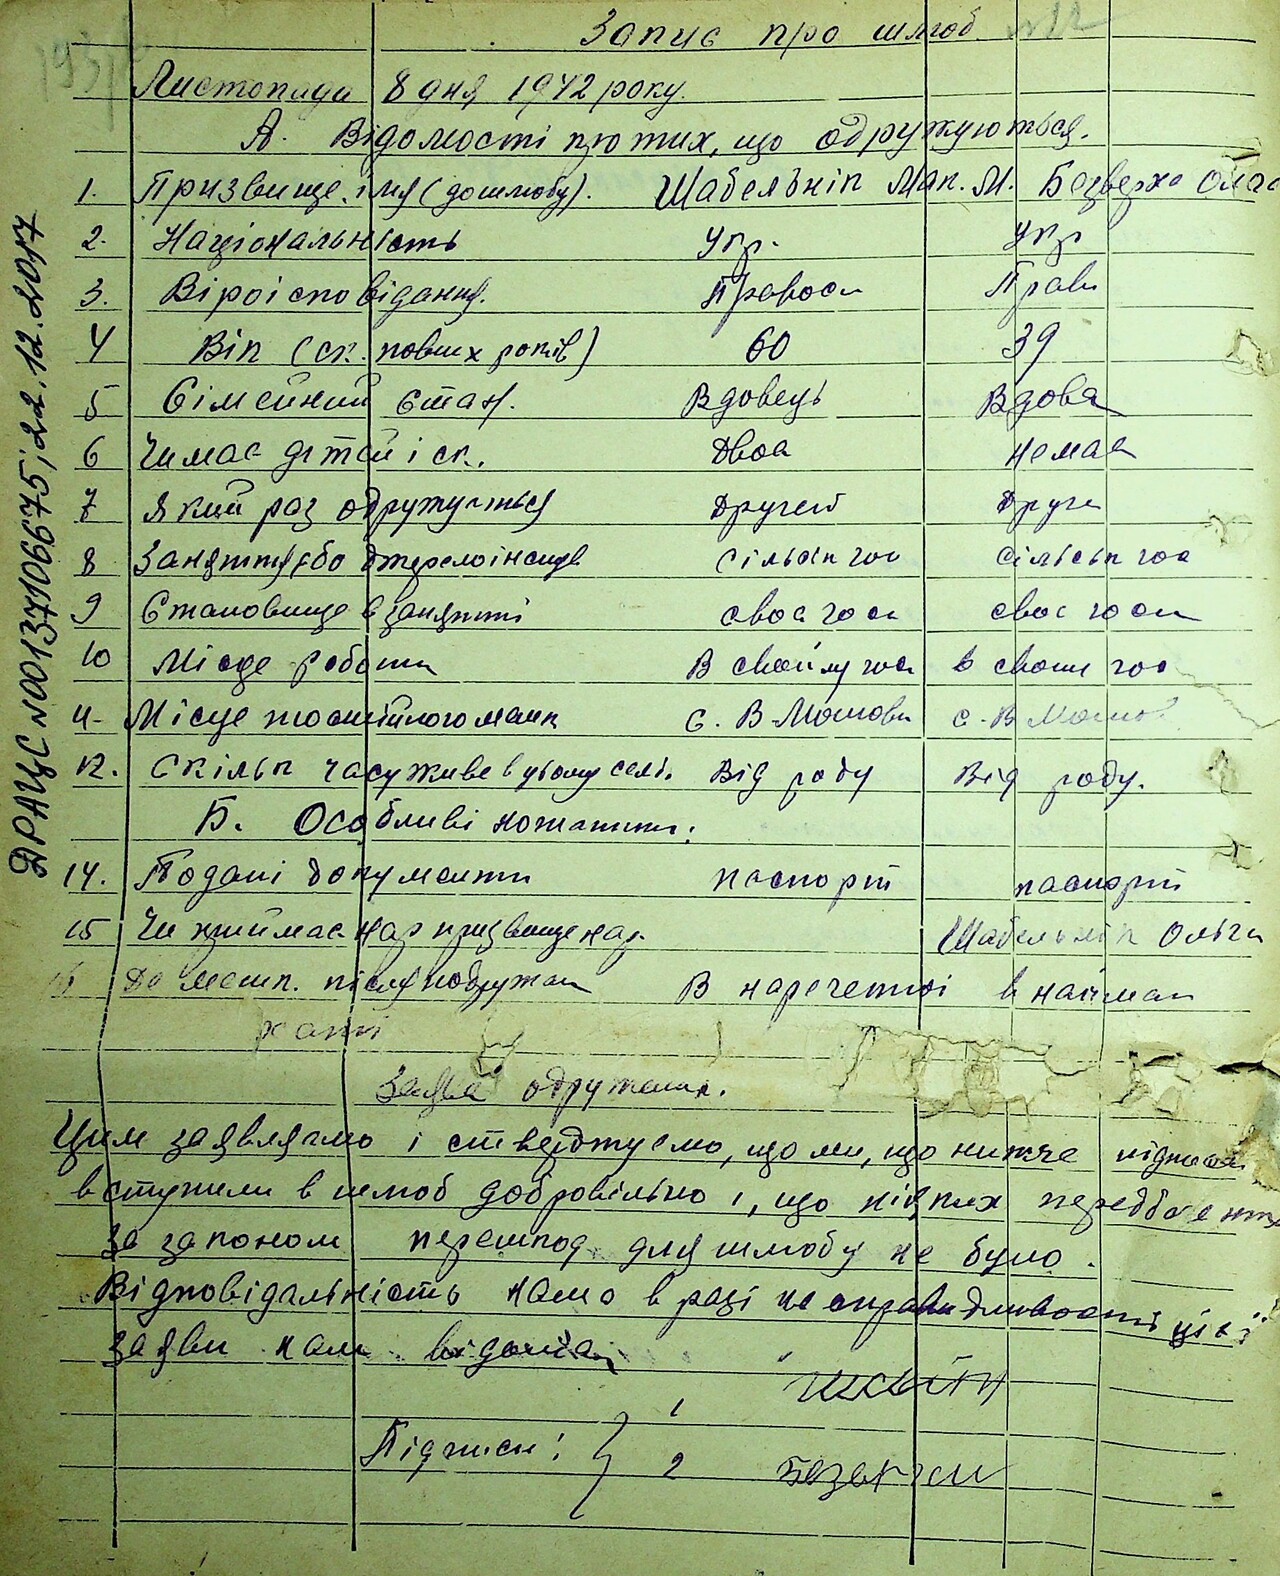 Запис про шлюб №12
Листопада 8 дня 1942 року.
А. Відомості про тих, що одружуються.
1. Призвище, імя (до шлюбу). Шабельнік Мак. М. Безверха Ольга
2. Національність Укр. Укр
3. Віроісповідання. Правосл Прав
4 Вік (ск. повних років) 60 39
5 Сімейний стан. Вдовець Вдова
6 Чи має дітей і ск. Двоє немає
7 Який раз одружується Другий Друге
8 Заняття або джерело існув сільськ гос сільськ гос
9 Становище в занятті своє госп своє госп
10 Місце роботи В своїму гос в своїм гос
11- Місце постійного мешк с. В-Мошов с. В Мош
12. Скільк часу живе в цьому селі. Від роду Від роду.
Б. Особливі нотатки:
14. Подані документи паспорт паспорт
15 Чи приймає нар призвище нар. Шабельнік Ольги
16 Де мешк. після подружжя В нареченої в найман
хаті
Заява одруження.
Цим заявляємо і стверджуємо, що ми, що нижче підписали
вступили в шлюб добровільно і, що ніяких передбачених
за законом перешкод для шлюбу не було.
Відповідальність намо в разі не справидливості цієї
заяви нам відома
Підписи: 1
2
ДРАЦС №00137106675; 22.12.2017